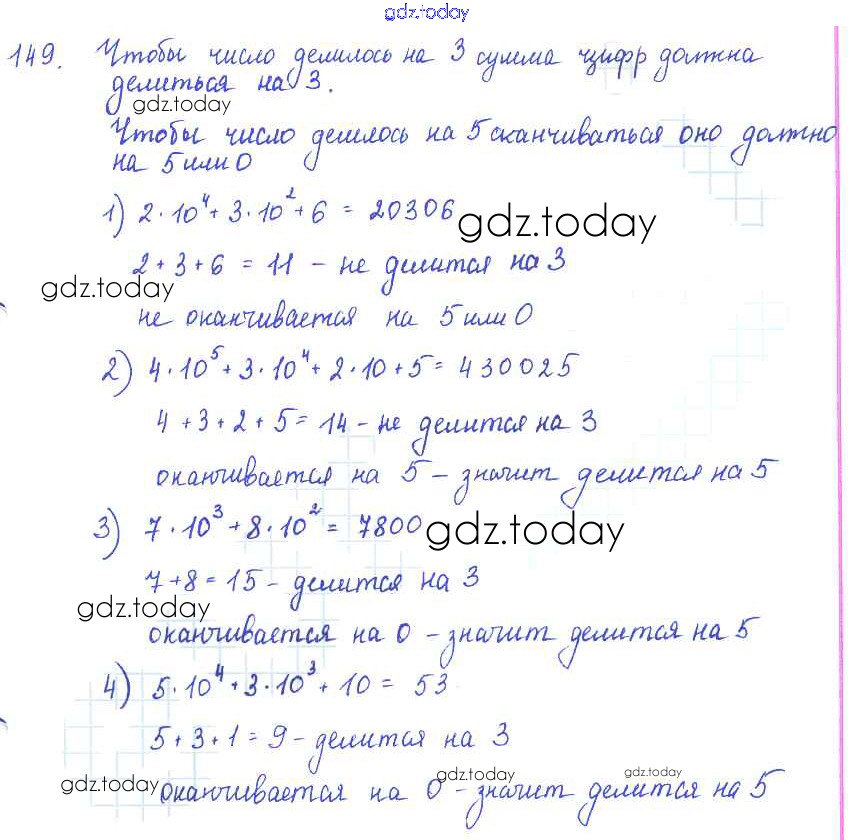 gdz.today
149. Чтобы число делилось на 3 сумма цифр должна
делиться на 3.
gdz.today
Чтобы число делилось на 5 сканчиваться оно должно
на 5 или 0
1) 2·10⁴+3·10²+6 = 20306
gdz.today
2+3+6 = 11 – не делится на 3
gdz.today
не оканчивается на 5 или 0
2) 4·10⁵+3·10⁴+2·10+5= 430025
4+3+2+5=14 – не делится на 3
оканчивается на 5 – значит делится на 5
3) 7·10³+8·10² = 7800
gdz.today
7+8=15 – делится на 3
gdz.today
оканчивается на 0 – значит делится на 5
4) 5·10⁴+3·10³+10 = 53
5+3+1=9 – делится на 3
gdz.today
gdz.today
gdz.today
оканчивается на 0 – значит делится на 5